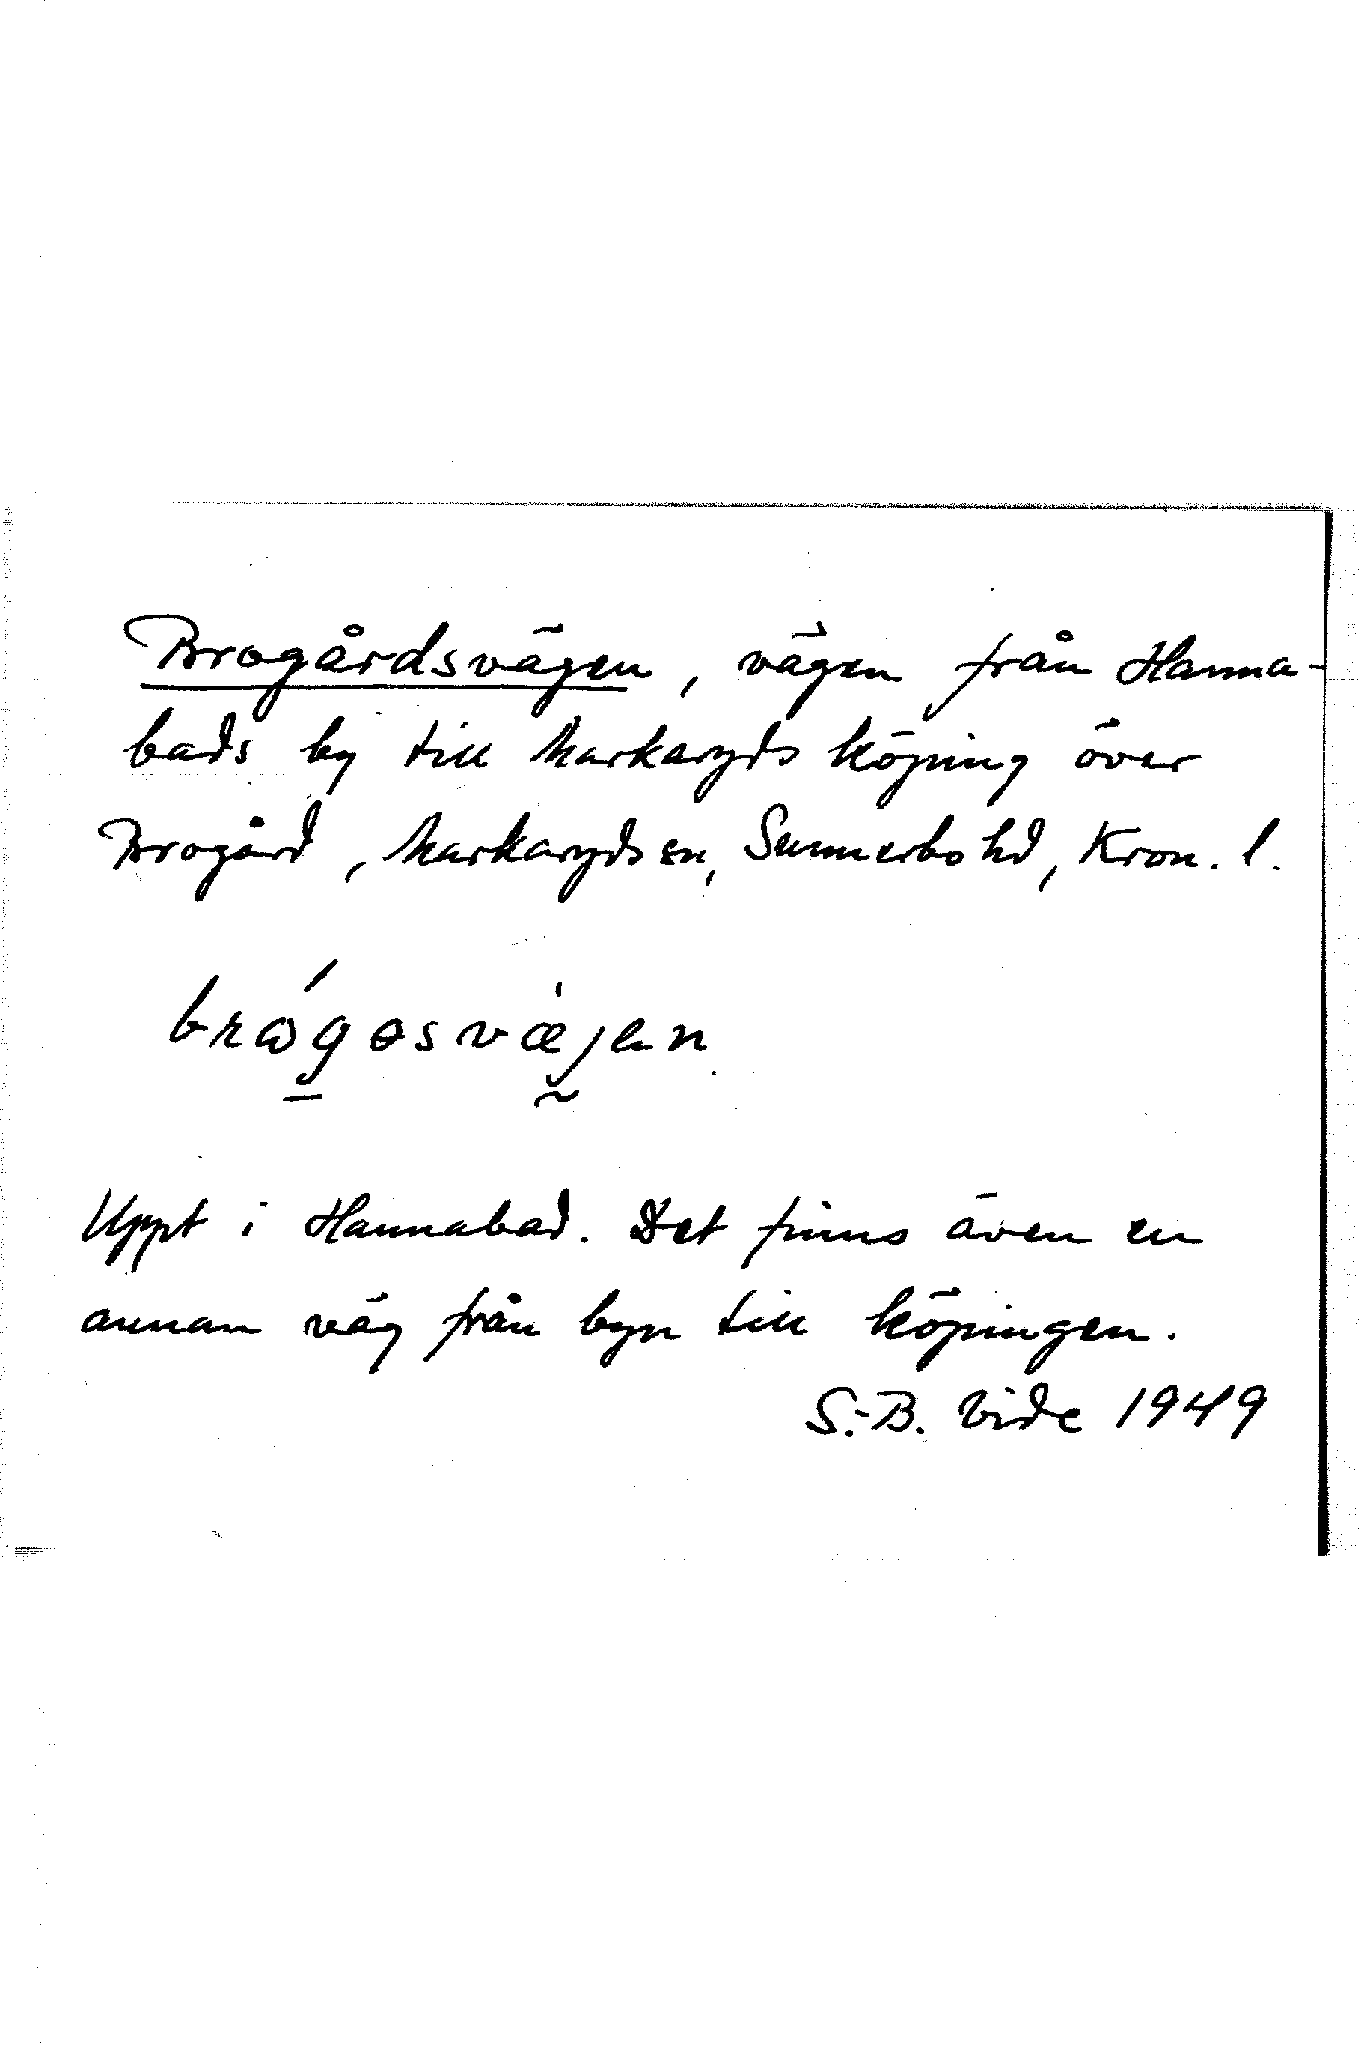 Brogårdsvägen, vägen från Hanna-
bads by till Markaryds köping över
Brogård, Markaryds sn, Sunnerbo hd, Kron. l.
brógɵsvæ̀jen
Uppt i Hannabad. Det finns även en
annan väg från byn till köpingen.
S.-B. Vide 1949